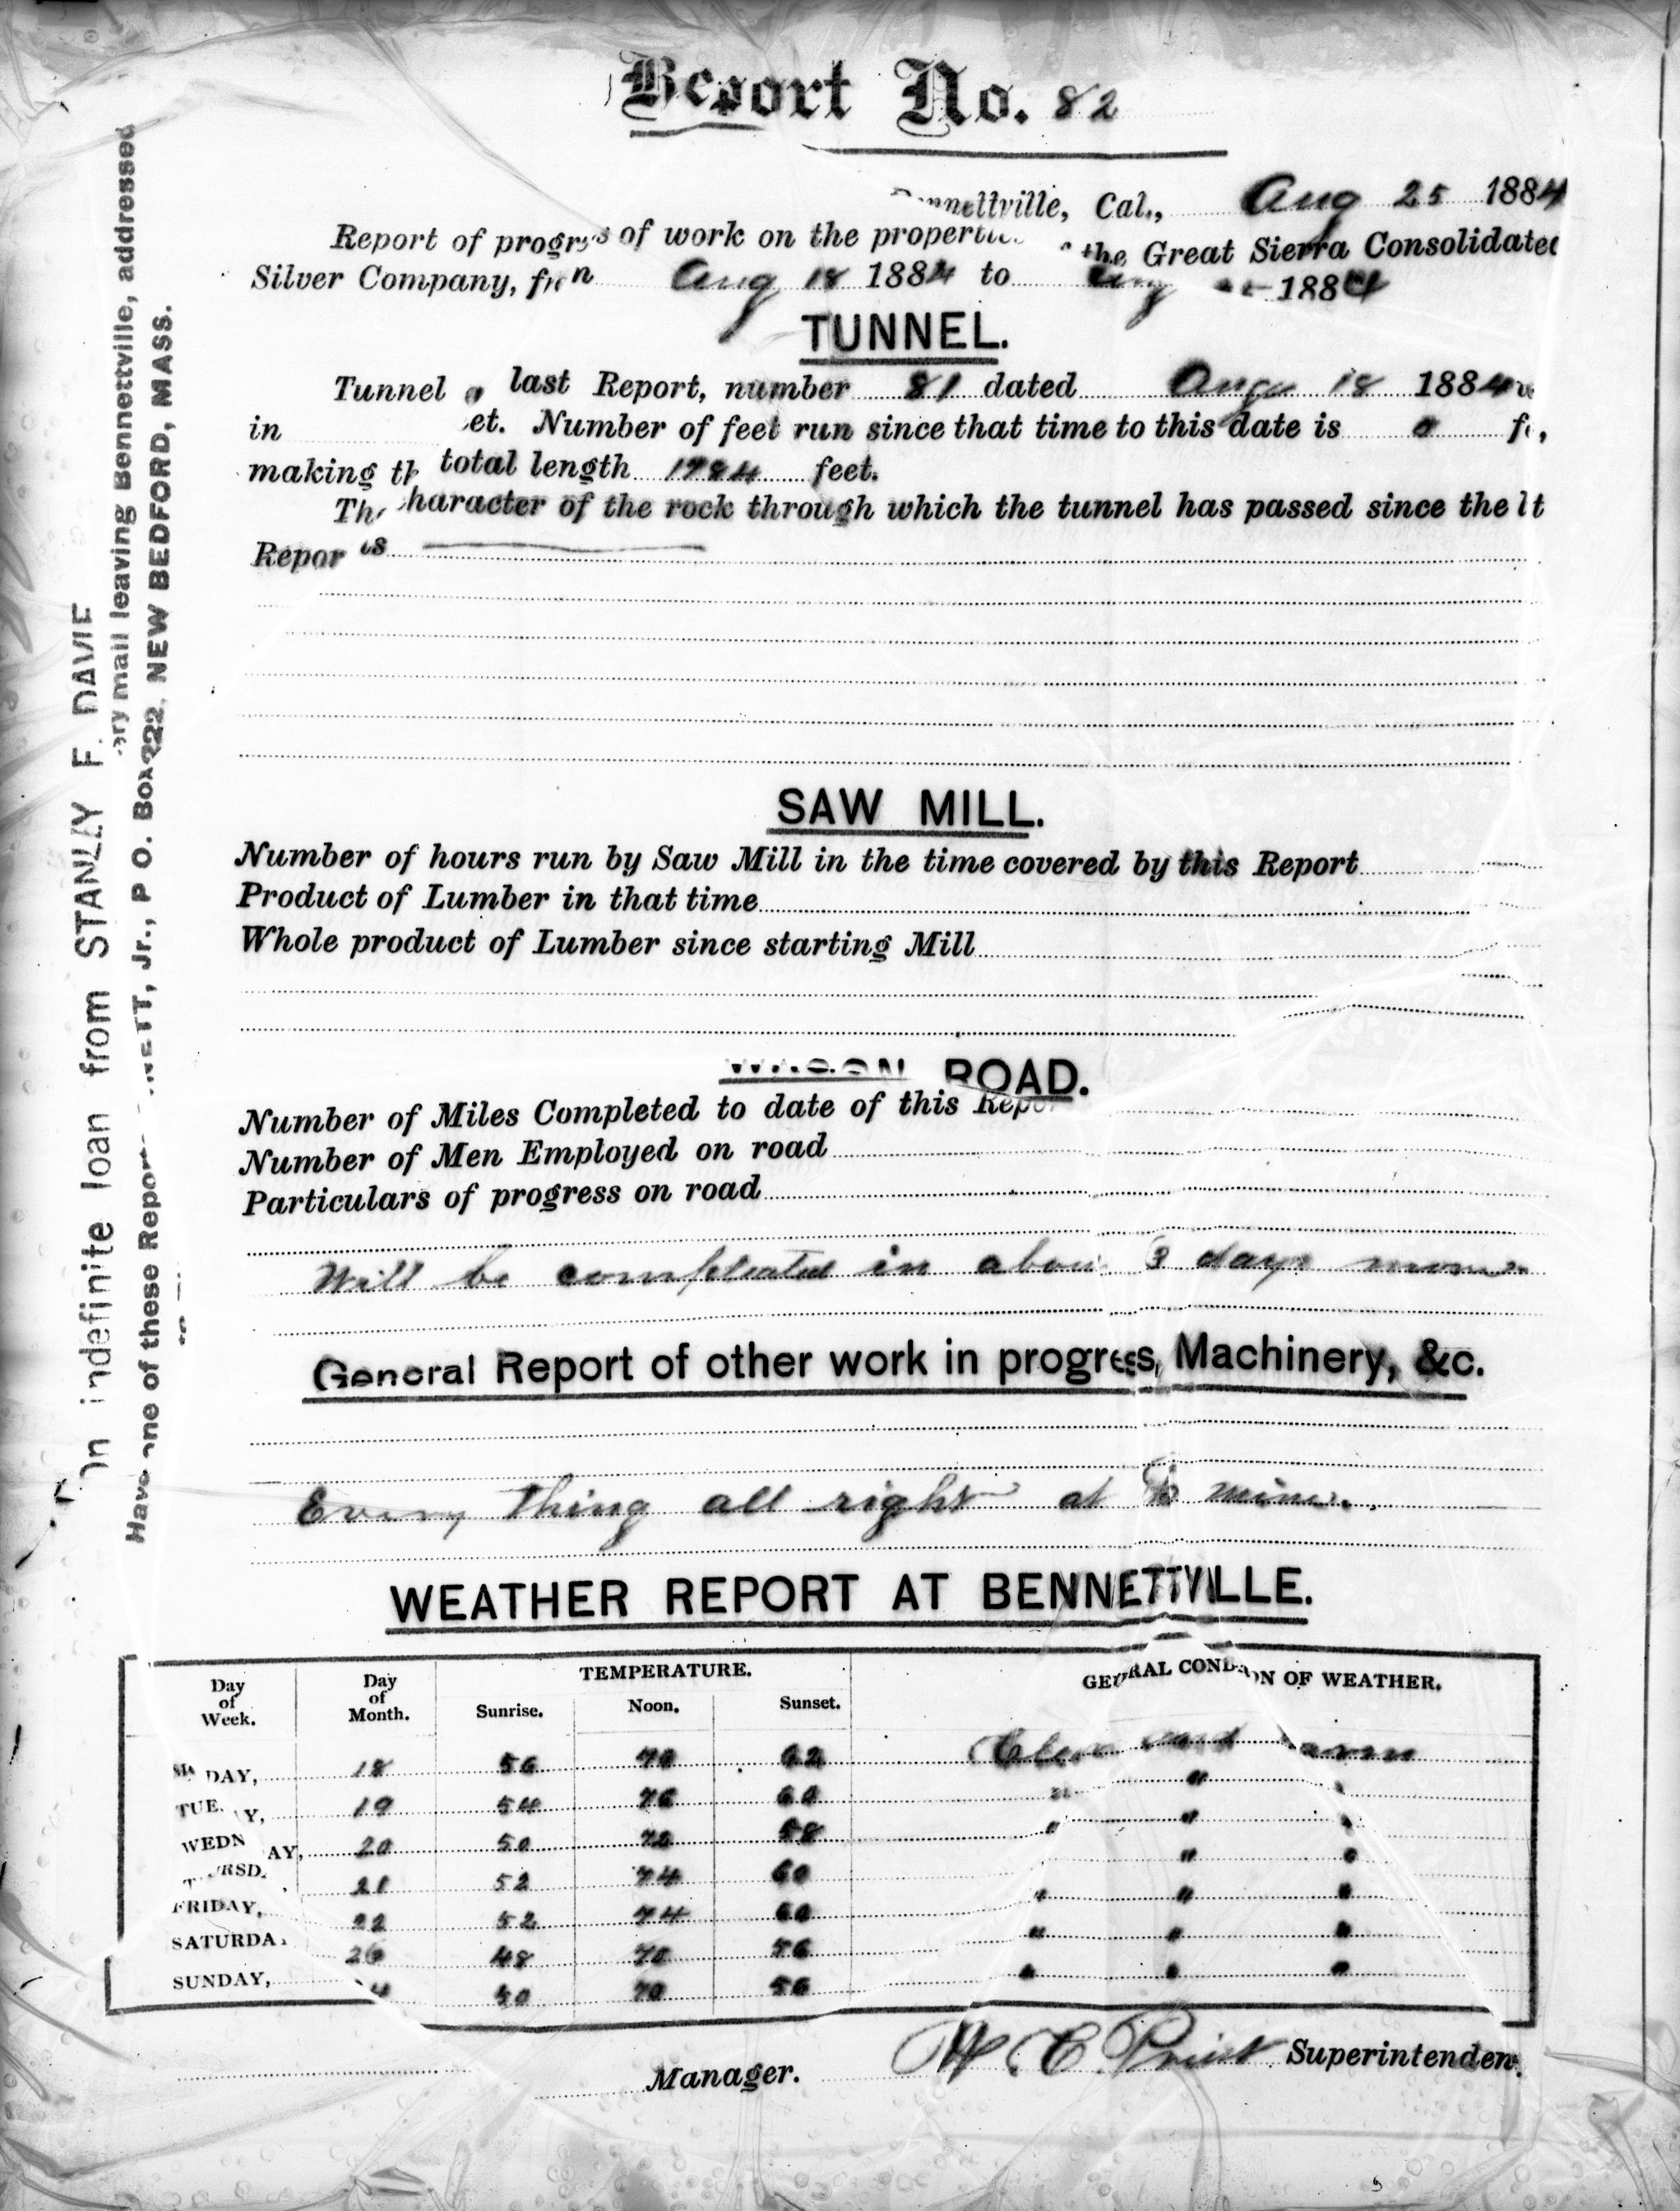 Report No. 82
Bennettville, Cal., Aug 25 1884
Report of progress of work on the properties of the Great Sierra Consolidated
Silver Company, from Aug 18 1884 to Aug 1884
TUNNEL.
Tunnel last Report, number 81 dated 18 1884
in feet. Number of feet run since that time to this date is 0
making the total length 1784 feet.
The character of the rock through which the tunnel has passed since the
Report is
SAW MILL.
Number of hours run by Saw Mill in the time covered by this Report
Product of Lumber in that time
Whole product of Lumber since starting Mill
WAGON ROAD.
Number of Miles Completed to date of this Report
Number of Men Employed on road
Particulars of progress on road
Will be compleated in about 3 days more
General Report of other work in progress, Machinery, &c.
Every thing all right at mines.
WEATHER REPORT AT BENNETTVILLE.
Day of Week. Day of Month. TEMPERATURE. GENERAL CONDITION OF WEATHER.
Sunrise. Noon. Sunset.
MONDAY, 18 56 62 Clear and warm
TUESDAY, 19 54 76 60 " " "
WEDNESDAY, 20 50 72 58 " " "
THURSDAY, 21 52 74 60 " "
FRIDAY, 22 52 74 60 " " "
SATURDAY 48 70 56 " " "
SUNDAY, 50 70 56 " " "
Manager. Superintendent.
On indefinite loan from STANLEY F. DAVIE
Have one of these Reports every mail leaving Bennettville, addressed
BENNETT, Jr., P O. Box 222, NEW BEDFORD, MASS.